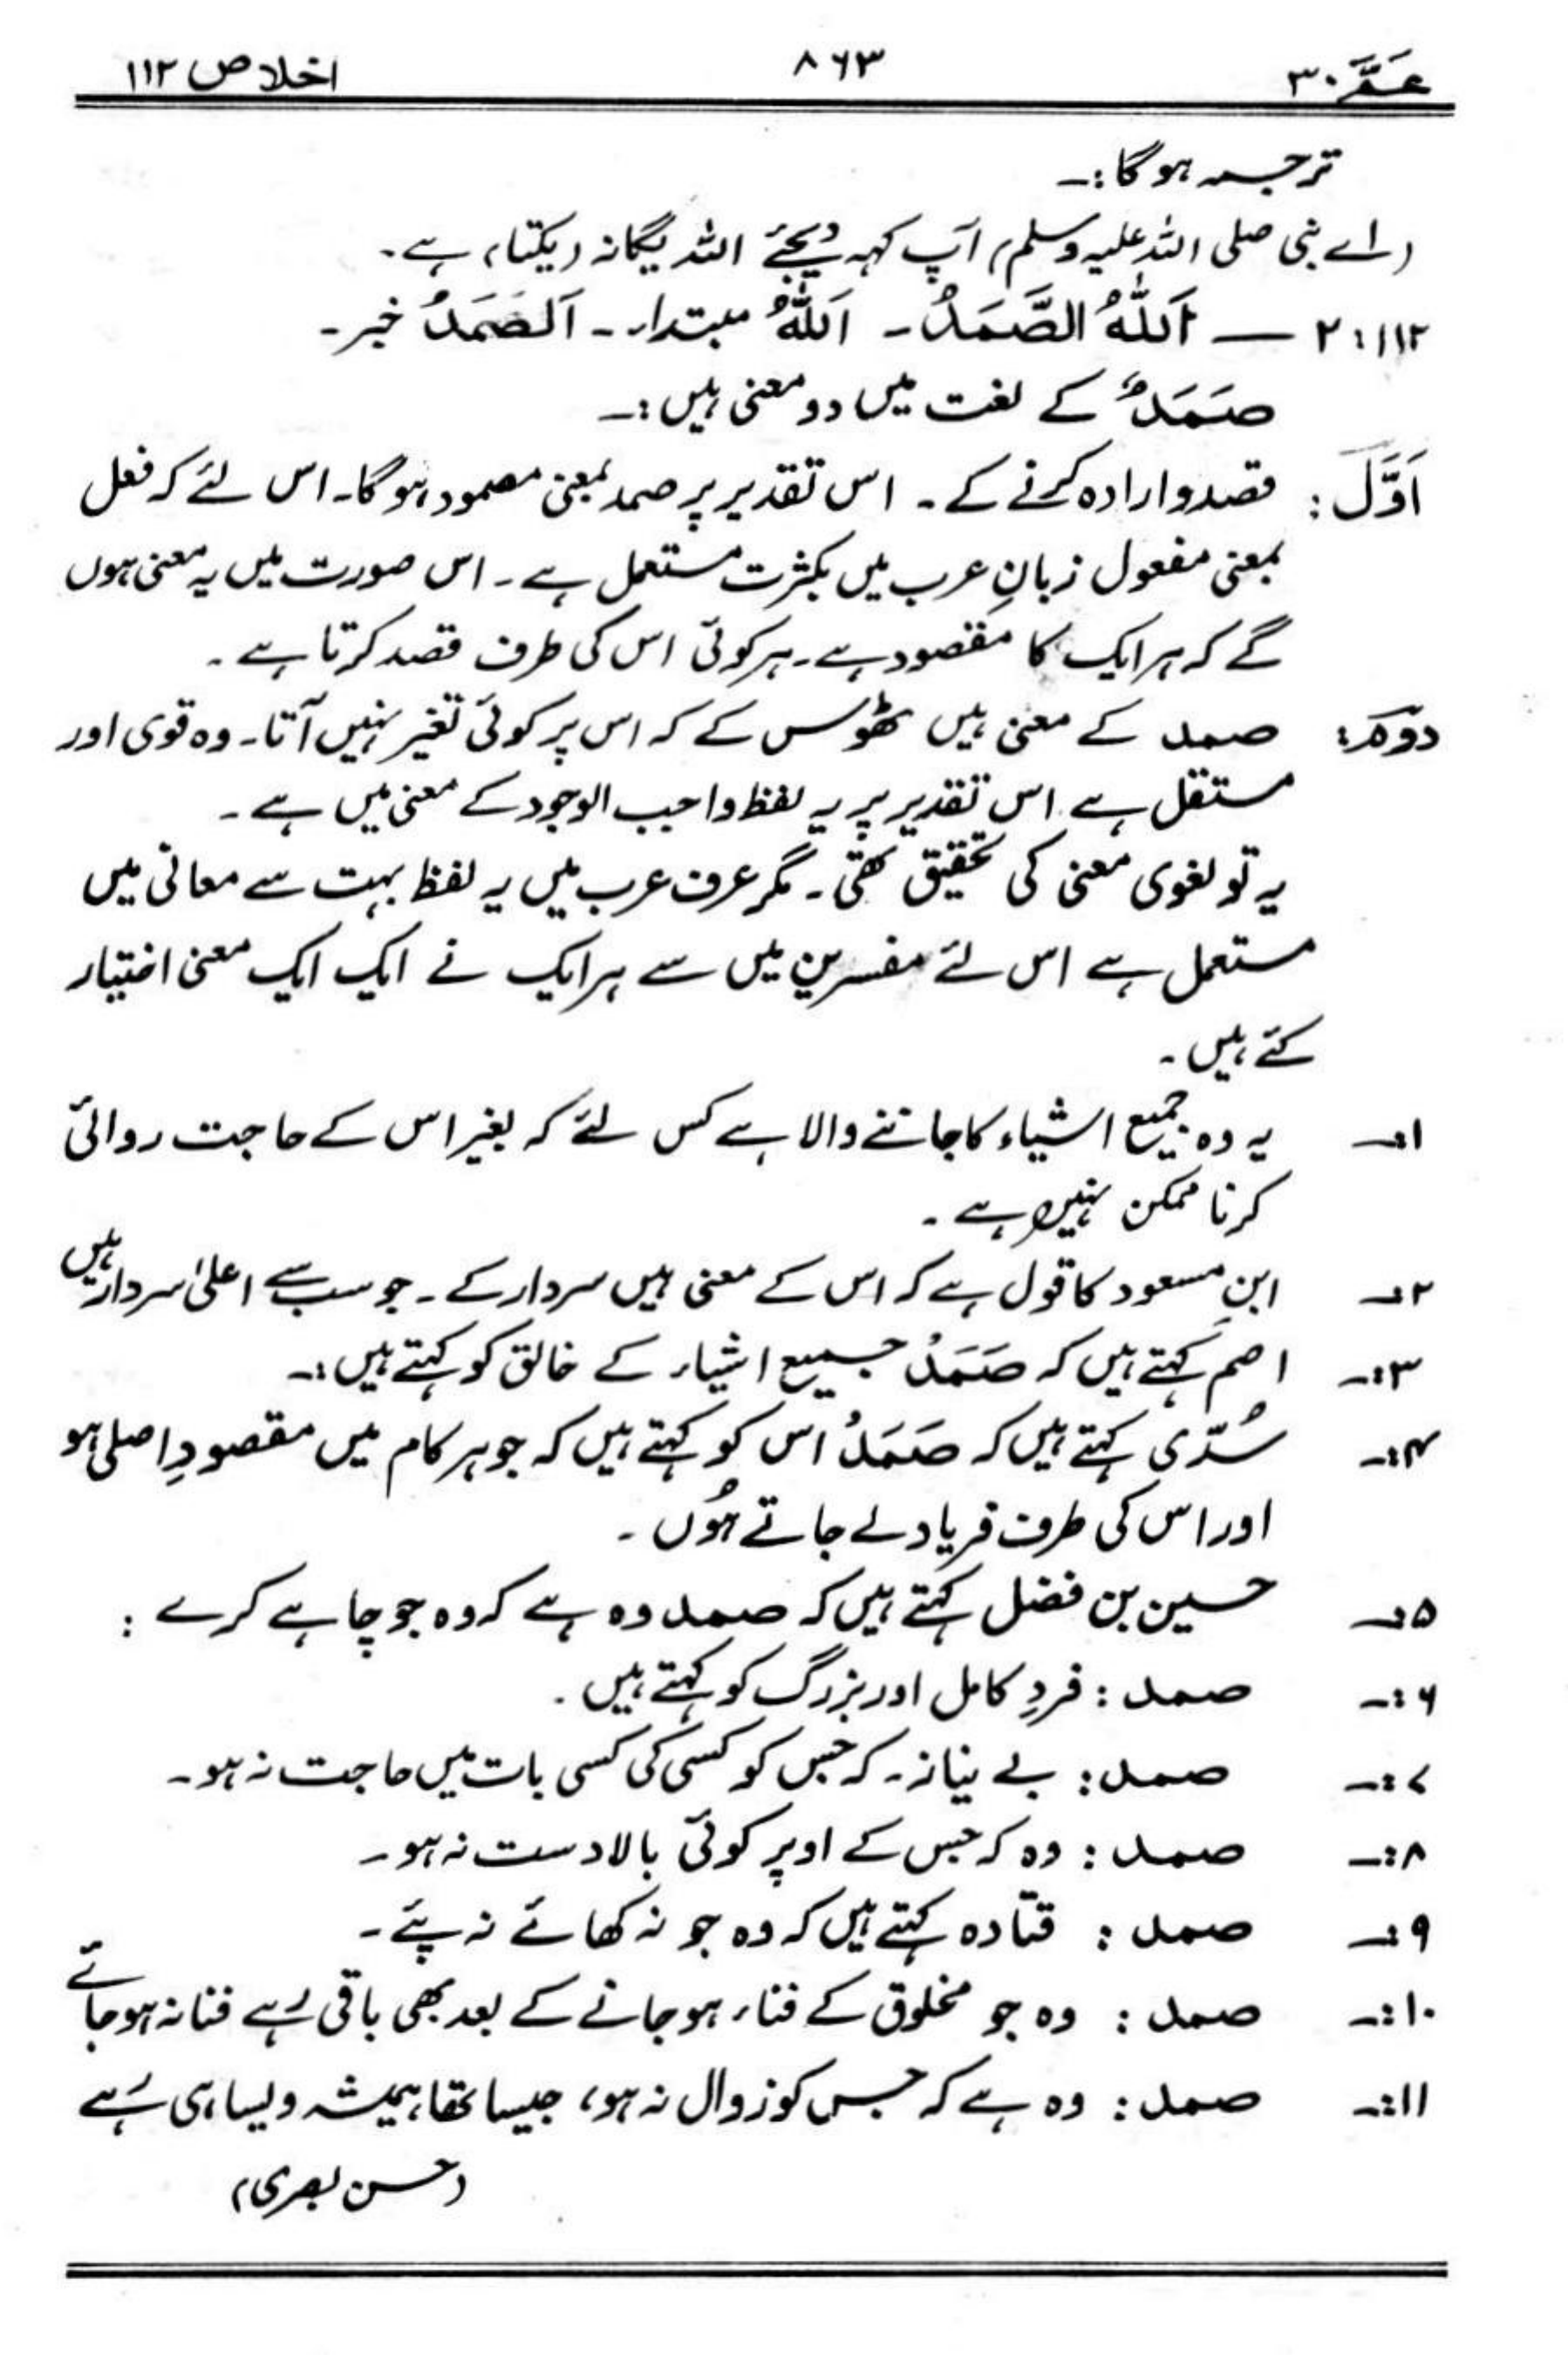 عَمَّ ۳۰ ۸۶۳ اخلاص ۱۱۲
ترجمہ ہوگا:۔
(اے نبی صلی اللہ علیہ وسلم) آپ کہہ دیجئے اللہ یگانہ (یکتا) ہے۔
۱۱۲:۲ — اَللّٰهُ الصَّمَدُ۔ اَللّٰهُ مبتداء۔ اَلصَّمَدُ خبر۔
صَمَدٌ کے لغت میں دو معنی ہیں:۔
اَوَّل: قصد و ارادہ کرنے کے۔ اس تقدیر پر صمد بمعنی مصمود ہوگا۔ اس لئے کہ فعل
بمعنی مفعول زبانِ عرب میں بکثرت مستعمل ہے۔ اس صورت میں یہ معنی ہوں
گے کہ ہر ایک کا مقصود ہے۔ ہر کوئی اس کی طرف قصد کرتا ہے۔
دوم: صمد کے معنی ہیں ٹھوس کے کہ اس پر کوئی تغیر نہیں آتا۔ وہ قوی اور
مستقل ہے اس تقدیر پر یہ لفظ واجب الوجود کے معنی میں ہے۔
یہ تو لغوی معنی کی تحقیق تھی۔ مگر عرف عرب میں یہ لفظ بہت سے معانی میں
مستعمل ہے اس لئے مفسرین میں سے ہر ایک نے ایک ایک معنی اختیار
کئے ہیں۔
۱:۔ یہ وہ جمیع اشیاء کا جاننے والا ہے کس لئے کہ بغیر اس کے حاجت روائی
کرنا ممکن نہیں ہے۔
۲:۔ ابنِ مسعود کا قول ہے کہ اس کے معنی ہیں سردار کے۔ جو سب سے اعلیٰ سردار ہیں
۳:۔ اصم کہتے ہیں کہ صَمَدُ جمیع اشیاء کے خالق کو کہتے ہیں:۔
۴:۔ سُدّی کہتے ہیں کہ صَمَدُ اس کو کہتے ہیں کہ جو ہر کام میں مقصودِ اصلی ہو
اور اس کی طرف فریاد لے جاتے ہوں۔
۵:۔ حسین بن فضل کہتے ہیں کہ صمد وہ ہے کہ وہ جو چاہے کرے:
۶:۔ صمد: فردِ کامل اور بزرگ کو کہتے ہیں۔
۷:۔ صمد: بے نیاز۔ کہ جس کو کسی کی کسی بات میں حاجت نہ ہو۔
۸:۔ صمد: وہ کہ جس کے اوپر کوئی بالادست نہ ہو۔
۹:۔ صمد: قتادہ کہتے ہیں کہ وہ جو نہ کھائے نہ پئے۔
۱۰:۔ صمد: وہ جو مخلوق کے فناء ہو جانے کے بعد بھی باقی رہے فنا نہ ہو جائے
۱۱:۔ صمد: وہ ہے کہ جس کو زوال نہ ہو، جیسا تھا ہمیشہ ویسا ہی رہے
(حسن بصری)